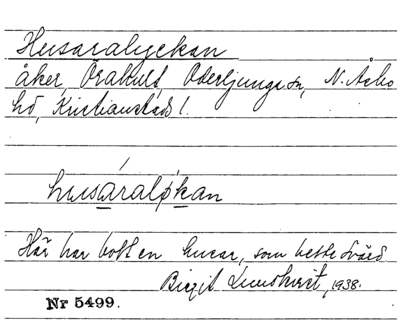 Husaralyckan
åker, Örahult, Oderljunga sn, N. Åsbo
hd, Kristianstads l.
husaraløkan
Här har bott en husar, som hette Svärd
Birgit Lundkvist, 1938.
Nr 5499.